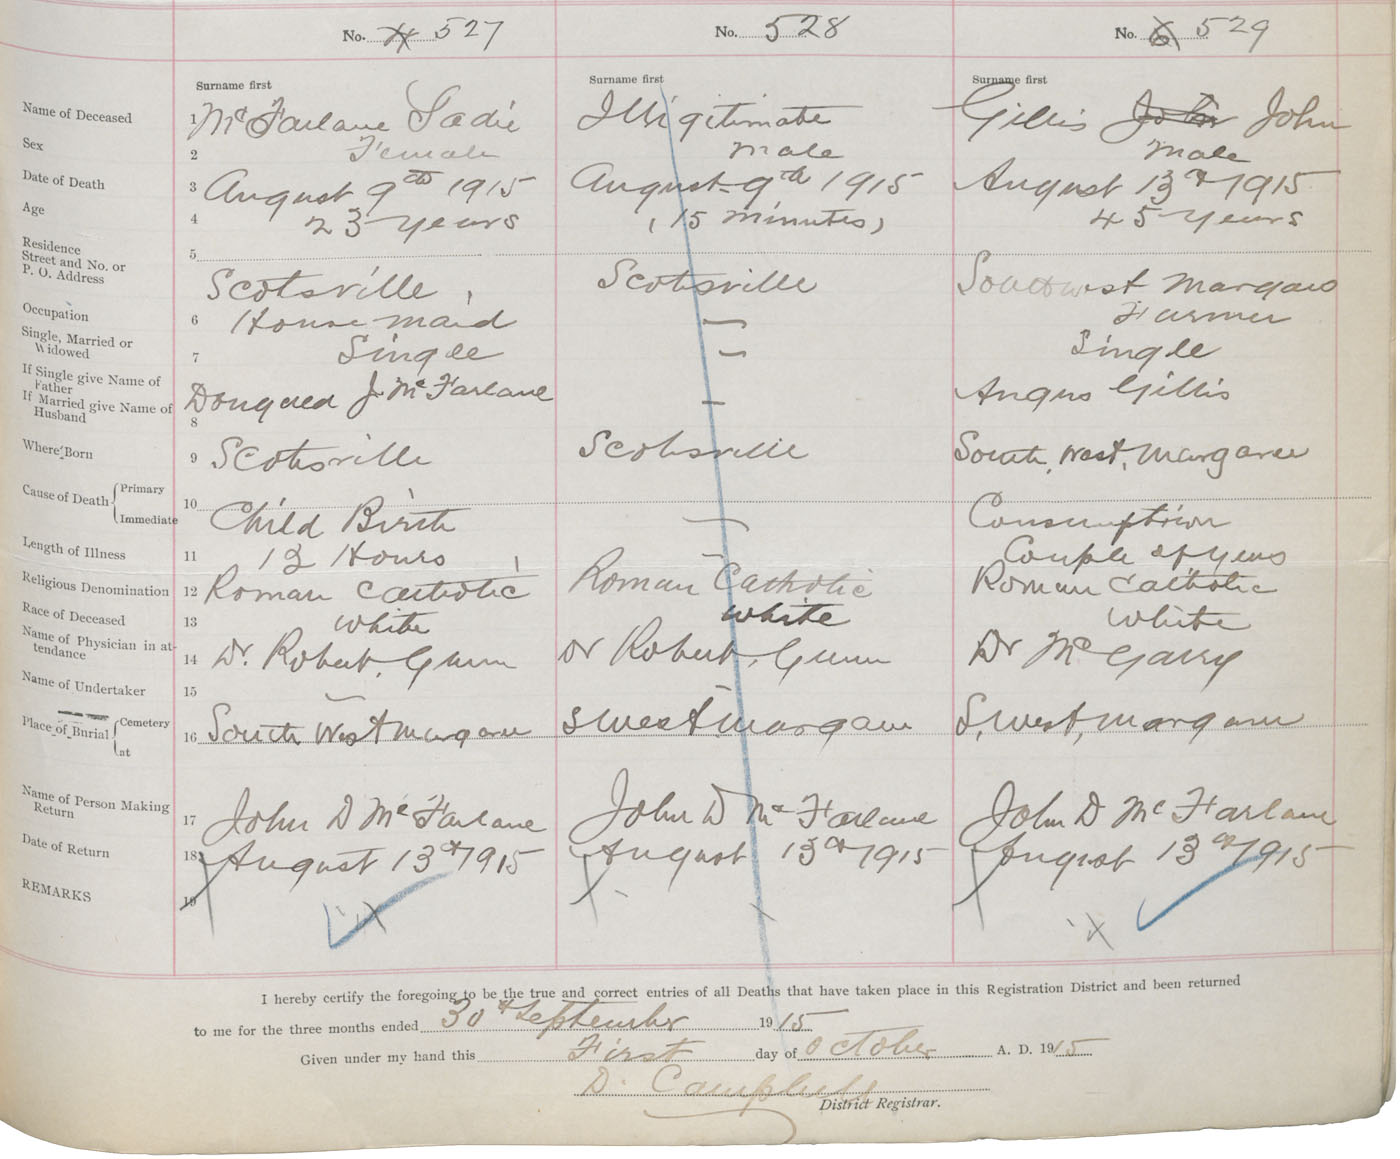 No. 527 No. 528 No. 529
Surname first Surname first Surname first
Name of Deceased 1 McFarlane Sadie Illigitimate Gillis John John
Sex 2 Female Male Male
Date of Death 3 August 9th 1915 August 9th 1915 August 13th 1915
Age 4 23 years (15 minutes) 45 years
Residence
Street and No. or 5
P. O. Address Scotsville, Scotsville Southwest Margaree
Occupation 6 House maid — Farmer
Single, Married or
Widowed 7 Single — Single
If Single give Name of
Father
If Married give Name of Dougued J. McFarlane — Angus Gillis
Husband 8
Where Born 9 Scotsville Scotsville South, West, Margaree
Cause of Death Primary 10
Immediate Child Birth — Consumption
Length of Illness 11 12 Hours — Couple of years
Religious Denomination 12 Roman Catholic Roman Catholic Roman Catholic
Race of Deceased 13 White White White
Name of Physician in at-
tendance 14 Dr. Robert, Gunn Dr Robert, Gunn Dr McGarry
Name of Undertaker 15 — —
Place of Burial Cemetery
at 16 South West Margaree S West Margaree S, West, Margaree
Name of Person Making
Return 17 John D McFarlane John D McFarlane John D McFarlane
Date of Return 18 August 13th 1915 August 13th 1915 August 13th 1915
REMARKS 19
I hereby certify the foregoing to be the true and correct entries of all Deaths that have taken place in this Registration District and been returned
to me for the three months ended 30th September 1915
Given under my hand this First day of October A. D. 1915
D. Campbell
District Registrar.